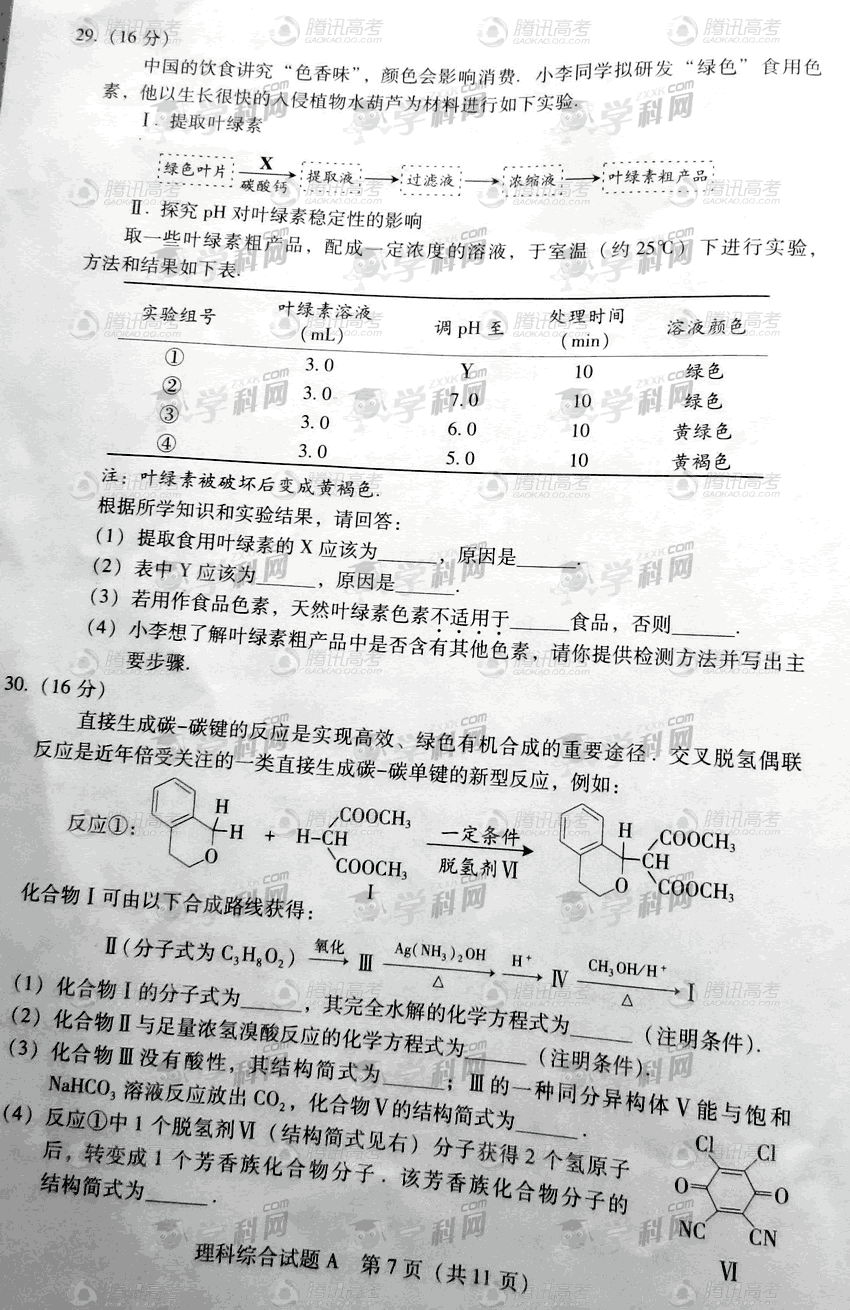 29. (16分)
中国的饮食讲究“色香味”，颜色会影响消费. 小李同学拟研发“绿色”食用色
素，他以生长很快的入侵植物水葫芦为材料进行如下实验.
Ⅰ. 提取叶绿素
绿色叶片 X 碳酸钙 提取液 过滤液 浓缩液 叶绿素粗产品
Ⅱ. 探究 pH 对叶绿素稳定性的影响
取一些叶绿素粗产品，配成一定浓度的溶液，于室温（约25℃）下进行实验，
方法和结果如下表.
实验组号 叶绿素溶液(mL) 调 pH 至 处理时间(min) 溶液颜色
① 3.0 Y 10 绿色
② 3.0 7.0 10 绿色
③ 3.0 6.0 10 黄绿色
④ 3.0 5.0 10 黄褐色
注：叶绿素被破坏后变成黄褐色.
根据所学知识和实验结果，请回答：
(1) 提取食用叶绿素的 X 应该为______，原因是______.
(2) 表中 Y 应该为______，原因是______.
(3) 若用作食品色素，天然叶绿素色素不适用于______食品，否则______.
(4) 小李想了解叶绿素粗产品中是否含有其他色素，请你提供检测方法并写出主
要步骤.
30. (16分)
直接生成碳-碳键的反应是实现高效、绿色有机合成的重要途径. 交叉脱氢偶联
反应是近年倍受关注的一类直接生成碳-碳单键的新型反应，例如：
反应①: H H O + H-CH COOCH₃ COOCH₃ Ⅰ 一定条件 脱氢剂Ⅵ H O CH COOCH₃ COOCH₃
化合物Ⅰ可由以下合成路线获得：
Ⅱ(分子式为 C₃H₈O₂) 氧化 Ⅲ Ag(NH₃)₂OH △ H⁺ Ⅳ CH₃OH/H⁺ △ Ⅰ
(1) 化合物Ⅰ的分子式为______，其完全水解的化学方程式为______（注明条件).
(2) 化合物Ⅱ与足量浓氢溴酸反应的化学方程式为______（注明条件).
(3) 化合物Ⅲ没有酸性，其结构简式为______；Ⅲ的一种同分异构体Ⅴ能与饱和
NaHCO₃ 溶液反应放出 CO₂，化合物Ⅴ的结构简式为______.
(4) 反应①中1个脱氢剂Ⅵ（结构简式见右）分子获得2个氢原子
后，转变成1个芳香族化合物分子. 该芳香族化合物分子的
结构简式为______.
Cl Cl
O O
NC CN
Ⅵ
理科综合试题A 第7页（共11页）
腾讯高考
GAOKAO.QQ.COM
学科网
ZXXK.COM